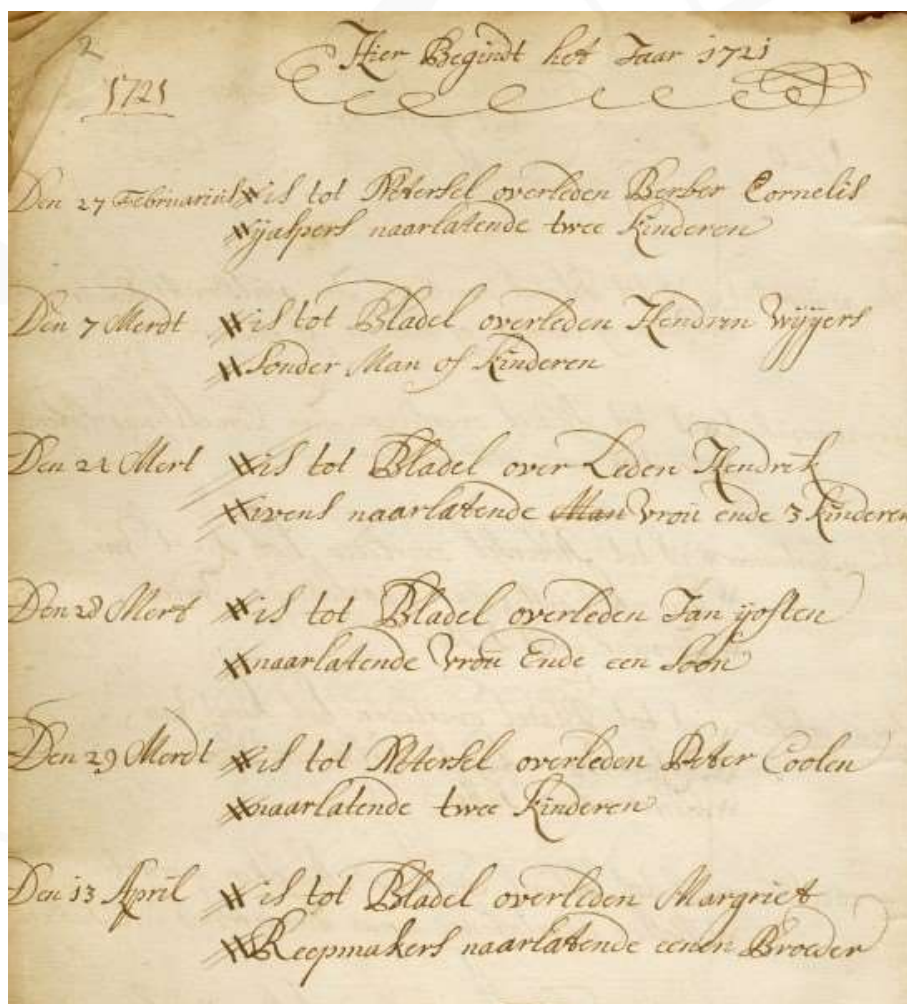 2
Hier Begindt het Jaar 1721
1721
Den 27 Februarius is tot Netersel overleden Berber Cornelis
Yaspers naarlatende twee Kinderen
Den 7 Merdt is tot Bladel overleden Hendrin Wijyers
Sonder Man of Kinderen
Den 21 Mert is tot Bladel over Leden Hendrik
naarlatende Man Vrou ende 3 Kinderen
Den 28 Mert is tot Bladel overleden Jan yosten
naarlatende Vrou Ende een Soon
Den 29 Merdt is tot Netersel overleden Peter Coolen
naarlatende twee Kinderen
Den 13 April is tot Bladel overleden Margriet
Reepmakers naarlatende eenen Broeder